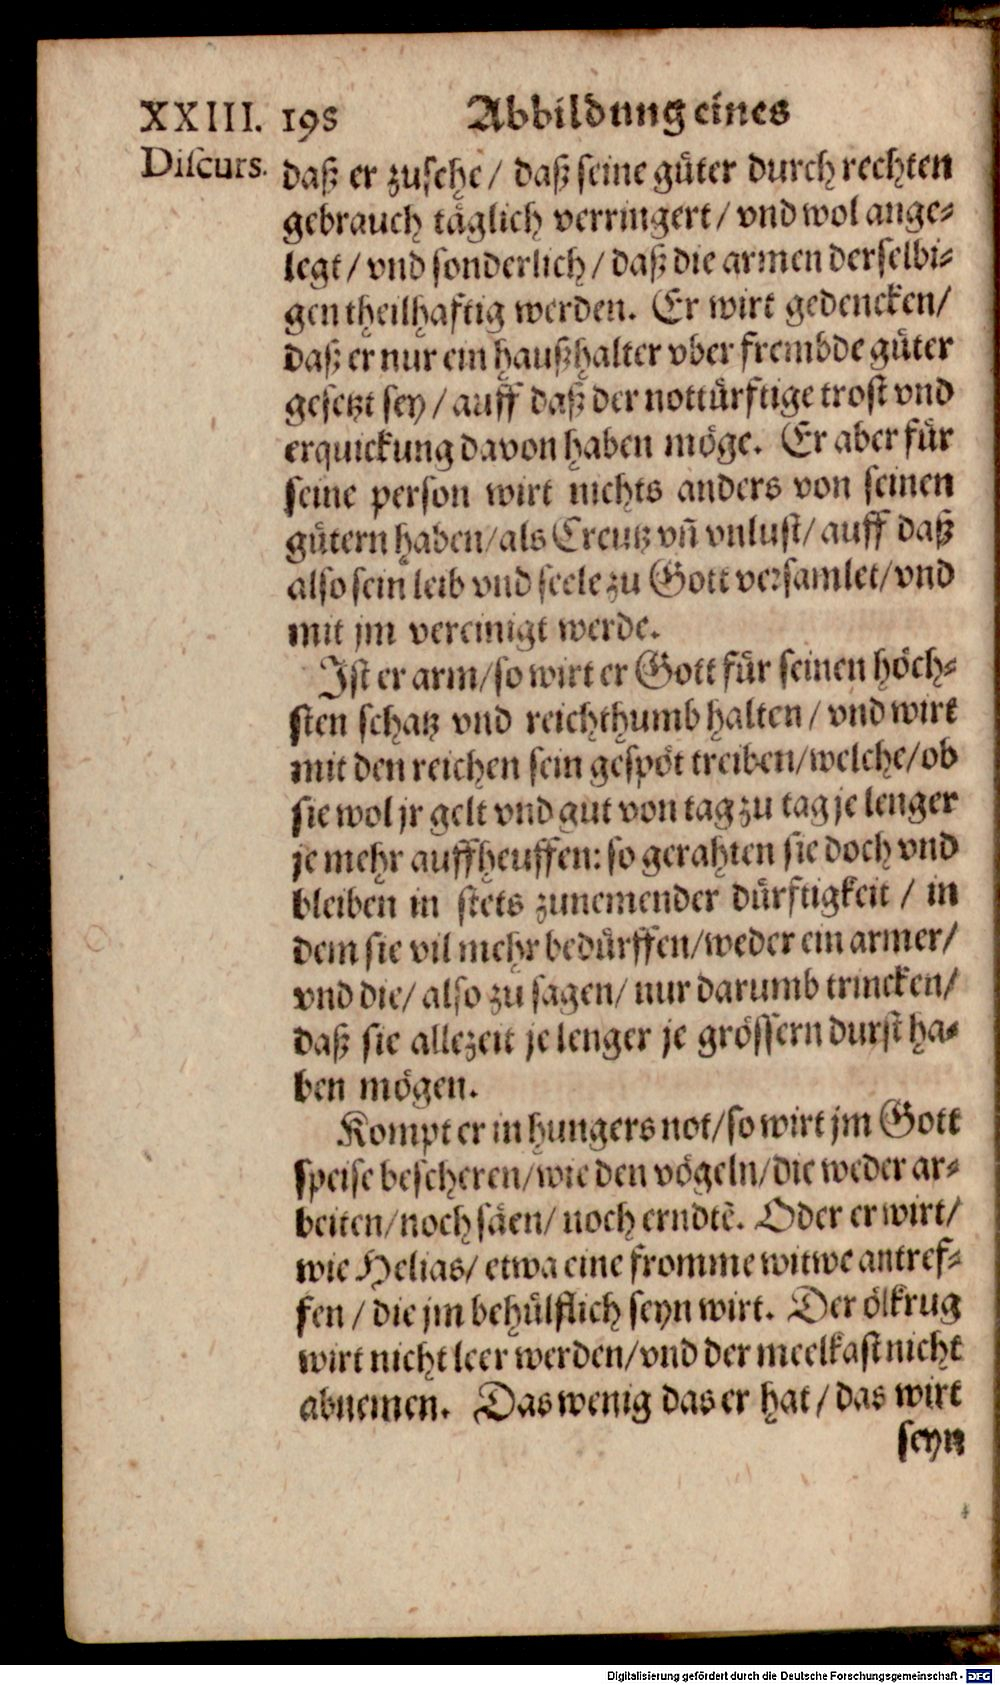 XXIII. 198 Abbildung eines
Discurs.
daß er zusehe / daß seine güter durch rechten
gebrauch täglich verringert / vnd wol ange-
legt / vnd sonderlich / daß die armen derselbi-
gen theilhaftig werden. Er wirt gedencken/
daß er nur ein haußhalter vber frembde güter
gesetzt sey / auff daß der nottürftige trost vnd
erquickung davon haben möge. Er aber für
seine person wirt nichts anders von seinen
gütern haben/als Creutz vñ vnlust/ auff daß
also sein leib vnd seele zu Gott versamlet/vnd
mit jm vereinigt werde.
Ist er arm/so wirt er Gott für seinen höch-
sten schatz vnd reichthumb halten / vnd wirt
mit den reichen sein gespöt treiben/welche/ob
sie wol jr gelt vnd gut von tag zu tag je lenger
je mehr auffheuffen: so gerahten sie doch vnd
bleiben in stets zunemender dürftigkeit / in
dem sie vil mehr bedürffen/weder ein armer/
vnd die/ also zu sagen/ nur darumb trincken/
daß sie allezeit je lenger je grössern durst ha-
ben mögen.
Kompt er in hungers not/so wirt jm Gott
speise bescheren/wie den vögeln/die weder ar-
beiten/noch säen/ noch erndtẽ. Oder er wirt/
wie Helias/ etwa eine fromme witwe antref-
fen / die jm behülflich seyn wirt. Der ölkrug
wirt nicht leer werden/vnd der meelkast nicht
abnemen. Das wenig das er hat / das wirt
seyn
Digitalisierung gefördert durch die Deutsche Forschungsgemeinschaft - DFG